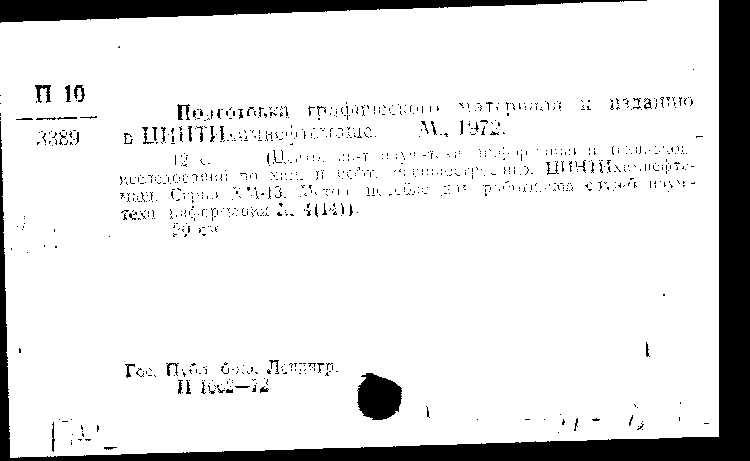 П 10
3389
Подготовка графического материала к изданию
в ЦИНТИхимнефтемаше. М., 1972.
12 с. (Центр. ин-т науч-техн. информации и
исследований по хим. и нефт. машиностроению. ЦИНТИхимнефте-
маш. Серия ХМ-13. Метод. пособие для работников служб науч-
техн. информации № 4(14)).
20 см
Гос. Публ. б-ка. Ленингр.
П 1002—72